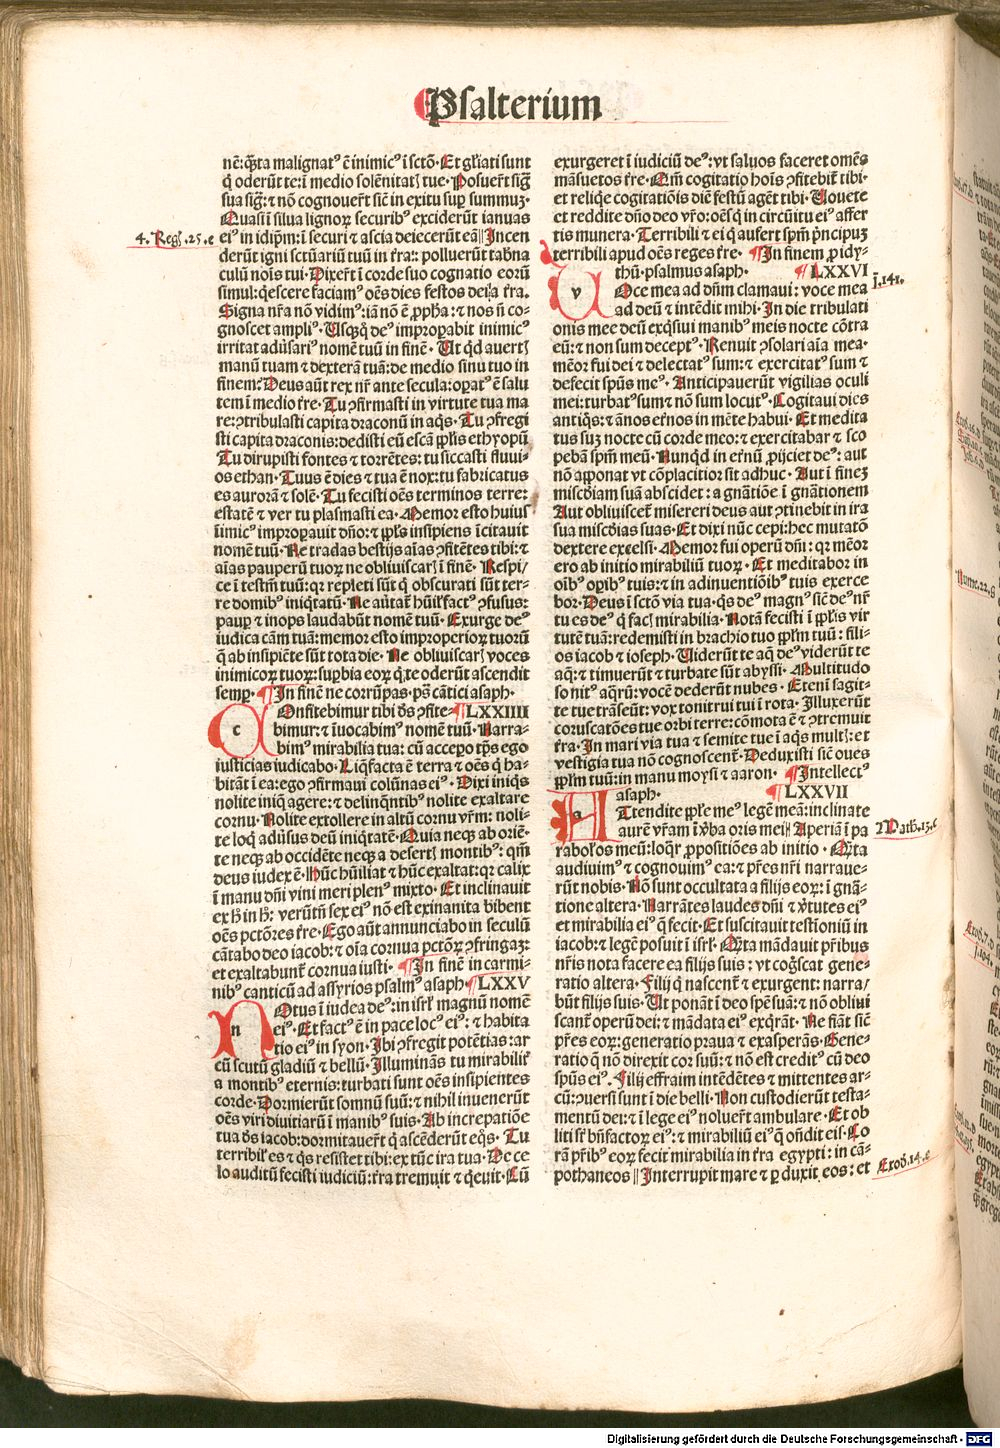 Psalterium
nē: q̄ta malignatꝰ ē inimicꝰ ī sctō. Et gl̄iati sunt
q̄ oderūt te: ī medio solēnitatꝭ tue. Posuer̄t siḡ
sua siḡ: ⁊ nō cognouer̄t sic̄ in exitu suꝑ summuꝫ.
Quasi ī silua lignoꝝ securibꝰ exciderūt ianuas
4. Regꝭ. 25. e
eiꝰ in idip̄m: ī securi ⁊ ascia deiecerūt eā || Incen
derūt igni sctūariū tuū in t̄ra: polluerūt tab̄na
culū nōis tui. Dixer̄t ī corde suo cognatio eorū
simul: q̄escere faciamꝰ oēs dies festos dei a t̄ra.
Signa nr̄a nō vidimꝰ: iā nō ē ꝓpħa: ⁊ nos nō co-
gnoscet ampliꝰ. Usqꝫq̄ deꝰ improꝑabit inimicꝰ
irritat adũsariꝰ nomē tuū in finē. Ut qd auertꝭ
manū tuam ⁊ dexterā tuā: de medio sinu tuo in
finem: Deus aūt rex nr̄ ante secula: oꝑatꝰ ē salu
tem ī medio t̄re. Tu ꝯfirmasti in virtute tua ma
re: ꝯtribulasti capita draconū in aq̄s. Tu ꝯfregi
sti capita draconis: dedisti eū escā pp̄lis ethyopū
Tu dirupisti fontes ⁊ torrētes: tu siccasti fluui-
os ethan. Tuus ē dies ⁊ tua ē nox: tu fabricatus
es aurorā ⁊ solē. Tu fecisti oēs terminos terre:
estatē ⁊ ver tu plasmasti ea. Memor esto huius
īimicꝰ improꝑauit dn̄o: ⁊ pp̄ls insipiens īcitauit
nomē tuū. Ne tradas bestijs aīas ꝯfitētes tibi: ⁊
aīas pauperū tuoꝝ ne obliuiscarꝭ ī finē. Respi-
ce ī testm̄ tuū: qꝛ repleti sūt q̄ obscurati sūt ter-
re domibꝰ iniq̄tatū. Ne aūtat̄ hūil̄ factꝰ ꝯfusus:
pauꝑ ⁊ inops laudabūt nomē tuū. Exurge deꝰ
iudica cām tuā: memor esto improperioꝝ tuorū
q̄ ab insipiēte sūt tota die. Ne obliuiscarꝭ voces
inimicoꝝ tuoꝝ: suꝑbia eoꝝ q̄ te oderūt ascendit
semꝑ. ¶ In finē ne corrūpas. ps̄ cātici asaph.
COnfitebimur tibi dꝰs ꝯfite- ¶ LXXIIII
bimur: ⁊ īuocabimꝰ nomē tuū. Narra-
bimꝰ mirabilia tua: cū accepo tp̄s ego
iusticias iudicabo. Liq̄facta ē terra ⁊ oēs q̄ ha-
bitāt ī ea: ego ꝯfirmaui colūnas eiꝰ. Dixi iniq̄s
nolite iniq̄ agere: ⁊ delinq̄ntibꝰ nolite exaltare
cornu. Nolite extollere in altū cornu vr̄m: noli-
te loq̄ adũsus deū iniq̄tatē. Quia neqꝫ ab oriē-
te neqꝫ ab occidēte neqꝫ a desertꝭ montibꝰ: qm̄
deus iudex ē. Hūc hūiliat ⁊ hūc exaltat: qꝛ calix
ī manu dn̄i vini meri plenꝰ mixto. Et inclinauit
ex ħ in ħ: verūtn̄ fex eiꝰ nō est exinanita bibent
oēs pctōres t̄re. Ego aūt annunciabo in seculū
cātabo deo iacob: ⁊ oīa cornua pctōꝝ ꝯfringaꝫ:
et exaltabunt̄ cornua iusti. ¶ In finē in carmi-
nibꝰ canticū ad assyrios psalmꝰ asaph. ¶ LXXV
NOtus ī iudea deꝰ: in isrl̄ magnū nomē
eiꝰ. Et factꝰ ē in pace locꝰ eiꝰ: ⁊ habita
tio eiꝰ in syon. Ibi ꝯfregit potētias: ar
cū scutū gladiū ⁊ bellū. Illuminās tu mirabilit̄
a montibꝰ eternis: turbati sunt oēs insipientes
corde. Dormierūt somnū suū: ⁊ nihil inuenerūt
oēs viri diuitiarū ī manibꝰ suis. Ab increpatiōe
tua dꝰs iacob: dormitauer̄t q̄ ascēderūt eq̄s. Tu
terribil̄ es ⁊ q̄s resistet tibi: ex tūc ira tua. De ce
lo auditū fecisti iudiciū: t̄ra tremuit ⁊ q̄euit. Cū
exurgeret ī iudiciū deꝰ: vt saluos faceret omēs
māsuetos t̄re. Qm̄ cogitatio hoīs ꝯfitebit̄ tibi.
et reliqe cogitatiōis diē festū agēt tibi. Uouete
et reddite dn̄o deo vr̄o: oēs q̄ in circūitu eiꝰ affer
tis munera. Terribili ⁊ ei q̄ aufert spm̄ pn̄cipuꝫ
terribili apud oēs reges t̄re. ¶ In finem ꝓ idy-
thū. psalmus asaph. ¶ LXXVI
j. 141.
VOce mea ad dn̄m clamaui: voce mea
ad deū ⁊ intēdit mihi. In die tribulati
onis mee deū exq̄sui manibꝰ meis nocte cōtra
eū: ⁊ non sum deceptꝰ. Renuit ꝯsolari aīa mea.
mēor fui dei ⁊ delectatꝰ sum: ⁊ exercitatꝰ sum ⁊
defecit spūs meꝰ. Anticipauerūt vigilias oculi
mei: turbatꝰ sum ⁊ nō sum locutꝰ. Cogitaui dies
antiq̄s: ⁊ ānos et̄nos in mēte habui. Et medita
tus suꝫ nocte cū corde meo: ⁊ exercitabar ⁊ sco
pebā spm̄ meū. Nunqd in et̄nū ꝓijciet deꝰ: aut
nō apponat vt cōplacitior sit adhuc. Aut ī fineꝫ
miscd̄iam suā abscidet: a gnātiōe ī gnātionem
Aut obliuiscet̄ misereri deus aut ꝯtinebit in ira
sua miscd̄ias suas. Et dixi nūc cepi: hec mutatō
dextere excelsi. Memor fui operū dn̄i: qꝛ mēor
ero ab initio mirabiliū tuoꝝ. Et meditabor in
oībꝰ oꝑibꝰ tuis: ⁊ in adinuentiōibꝰ tuis exerce
bor. Deus ī sctō via tua. q̄s deꝰ magnꝰ sic̄ deꝰ nr̄
tu es deꝰ q̄ facꝭ mirabilia. Notā fecisti ī pp̄lis vir
tutē tuā: redemisti in brachio tuo pp̄lm tuū: fili-
os iacob ⁊ ioseph. Uiderūt te aq̄ deꝰ viderūt te
aq̄: ⁊ timuerūt ⁊ turbate sūt abyssi. Multitudo
sonitꝰ aq̄rū: vocē dederūt nubes. Etenī sagit-
te tue trāseūt: vox tonitrui tui ī rota. Illuxerūt
coruscatōes tue orbi terre: cōmota ē ⁊ ꝯtremuit
t̄ra. In mari via tua ⁊ semite tue ī aq̄s multꝭ: et
vestigia tua nō cognoscent̄. Deduxisti sic̄ oues
pp̄lm tuū: in manu moysi ⁊ aaron. ¶ Intellectꝰ
asaph. ¶ LXXVII
ATtendite pp̄le meꝰ legē meā: inclinate
Math. 13. e
aurē vr̄am ī ṽba oris mei || Aperiā ī pa
rabol̄ os meū: loq̄r ꝓpositiōes ab initio. Q̄ta
audiuimꝰ ⁊ cognouimꝰ ea: ⁊ pr̄es nr̄i narraue-
rūt nobis. Nō sunt occultata a filijs eoꝝ: ī gnā-
tione altera. Narrātes laudes dn̄i ⁊ ṽtutes eiꝰ
et mirabilia eiꝰ q̄ fecit. Et suscitauit testioniū in
iacob: ⁊ legē posuit ī isrl̄. Q̄ta mādauit pr̄ibus
nr̄is nota facere ea filijs suis: vt coḡscat gene-
ratio altera. Filij q̄ nascent̄ ⁊ exurgent: narra/
būt filijs suis. Ut ponāt ī deo spē suā: ⁊ nō obliui
scant̄ operū dei: ⁊ mādata eiꝰ exq̄rāt. Ne fiāt sic̄
pr̄es eoꝝ: generatio praua ⁊ exasperās. Gene-
ratio q̄ nō direxit cor suū: ⁊ nō est creditꝰ cū deo
spūs eiꝰ. Filij effraim intēdētes ⁊ mittentes ar-
cū: ꝯuersi sunt ī die belli. Non custodierūt testa-
mentū dei: ⁊ ī lege eiꝰ noluer̄t ambulare. Et ob
liti st̄ bn̄factoꝝ eiꝰ: ⁊ mirabiliū eiꝰ q̄ on̄dit eis. Co
rā pr̄ibꝰ eoꝝ fecit mirabilia in t̄ra egypti: in cā-
Exod. 14. e
pothaneos || Interrupit mare ⁊ ꝑduxit eos: et
Digitalisierung gefördert durch die Deutsche Forschungsgemeinschaft - DFG